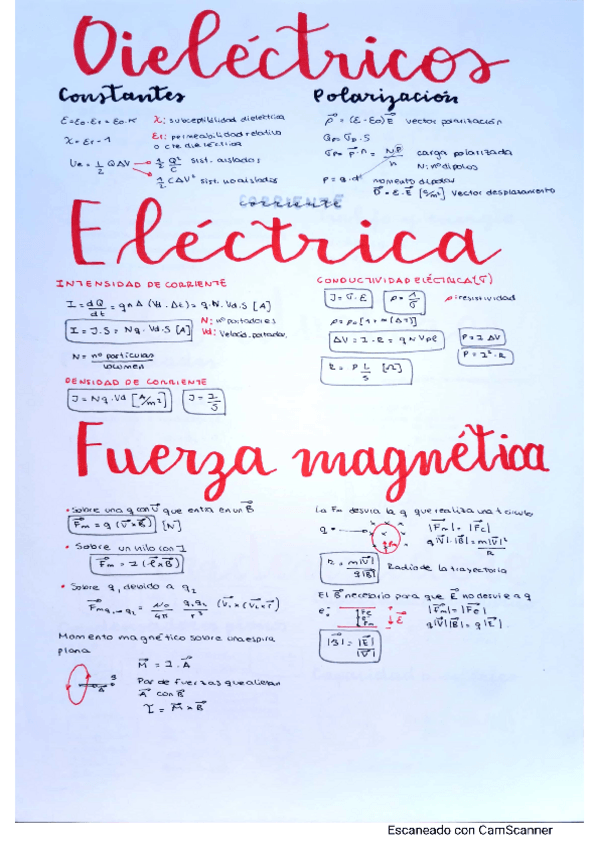 Dieléctricos
Constantes
ε=ε₀·εᵣ=ε₀·K
χ: susceptibilidad dieléctrica
χ=εᵣ-1
εᵣ: permeabilidad relativa
o cte dieléctrica
Ue = 1/2 QΔV
1/2 Q²/C sist. aislados
1/2 CΔV² sist. no aislados
Polarización
P⃗ = (ε-ε₀)E⃗ vector polarización
Qp = σp · S
σp = P⃗·n = NP/n carga polarizada
N: nº dipolos
P = q·d momento dipolar
D⃗ = ε·E⃗ [C/m²] Vector desplazamiento
CORRIENTE
Eléctrica
INTENSIDAD DE CORRIENTE
I = dQ/dt = qnA (Vd·Δt) = q·N·Vd·S [A]
I = J·S = Nq·Vd·S [A]
N: nº portadores
Vd: Veloc. portador
N = nº partículas/volumen
DENSIDAD DE CORRIENTE
J = Nq·Vd [A/m²]
J = I/S
CONDUCTIVIDAD ELÉCTRICA (σ)
J = σ·E
ρ = 1/σ
ρ: resistividad
ΔV = I·R = qNVρl
P = I ΔV
P = I²·R
R = ρ L/S [Ω]
Fuerza magnética
• Sobre una q con V⃗ que entra en un B⃗
F⃗m = q (V⃗×B⃗) [N]
• Sobre un hilo con I
F⃗m = I (l⃗×B⃗)
• Sobre q₁ debido a q₂
F⃗m q₂→q₁ = μ₀/4π q₁q₂/r² (V⃗₁×(V⃗₂×r⃗))
Momento magnético sobre una espira
plana
M⃗ = I·A⃗
Par de fuerzas que alinean
A⃗ con B⃗
τ = M⃗×B⃗
La Fm desvía la q que realiza un círculo
q
|F⃗m| = |F⃗c|
q|V⃗|·|B⃗| = m|V⃗|²/R
R = m|V⃗|/q|B⃗|
Radio de la trayectoria
El B⃗ necesario para que E⃗ no desvíe a q
e⁻
Fe
Fm
E⃗
|F⃗m| = |F⃗e|
q|V⃗||B⃗| = q|E⃗|
|B⃗| = |E⃗|/|V⃗|
Escaneado con CamScanner